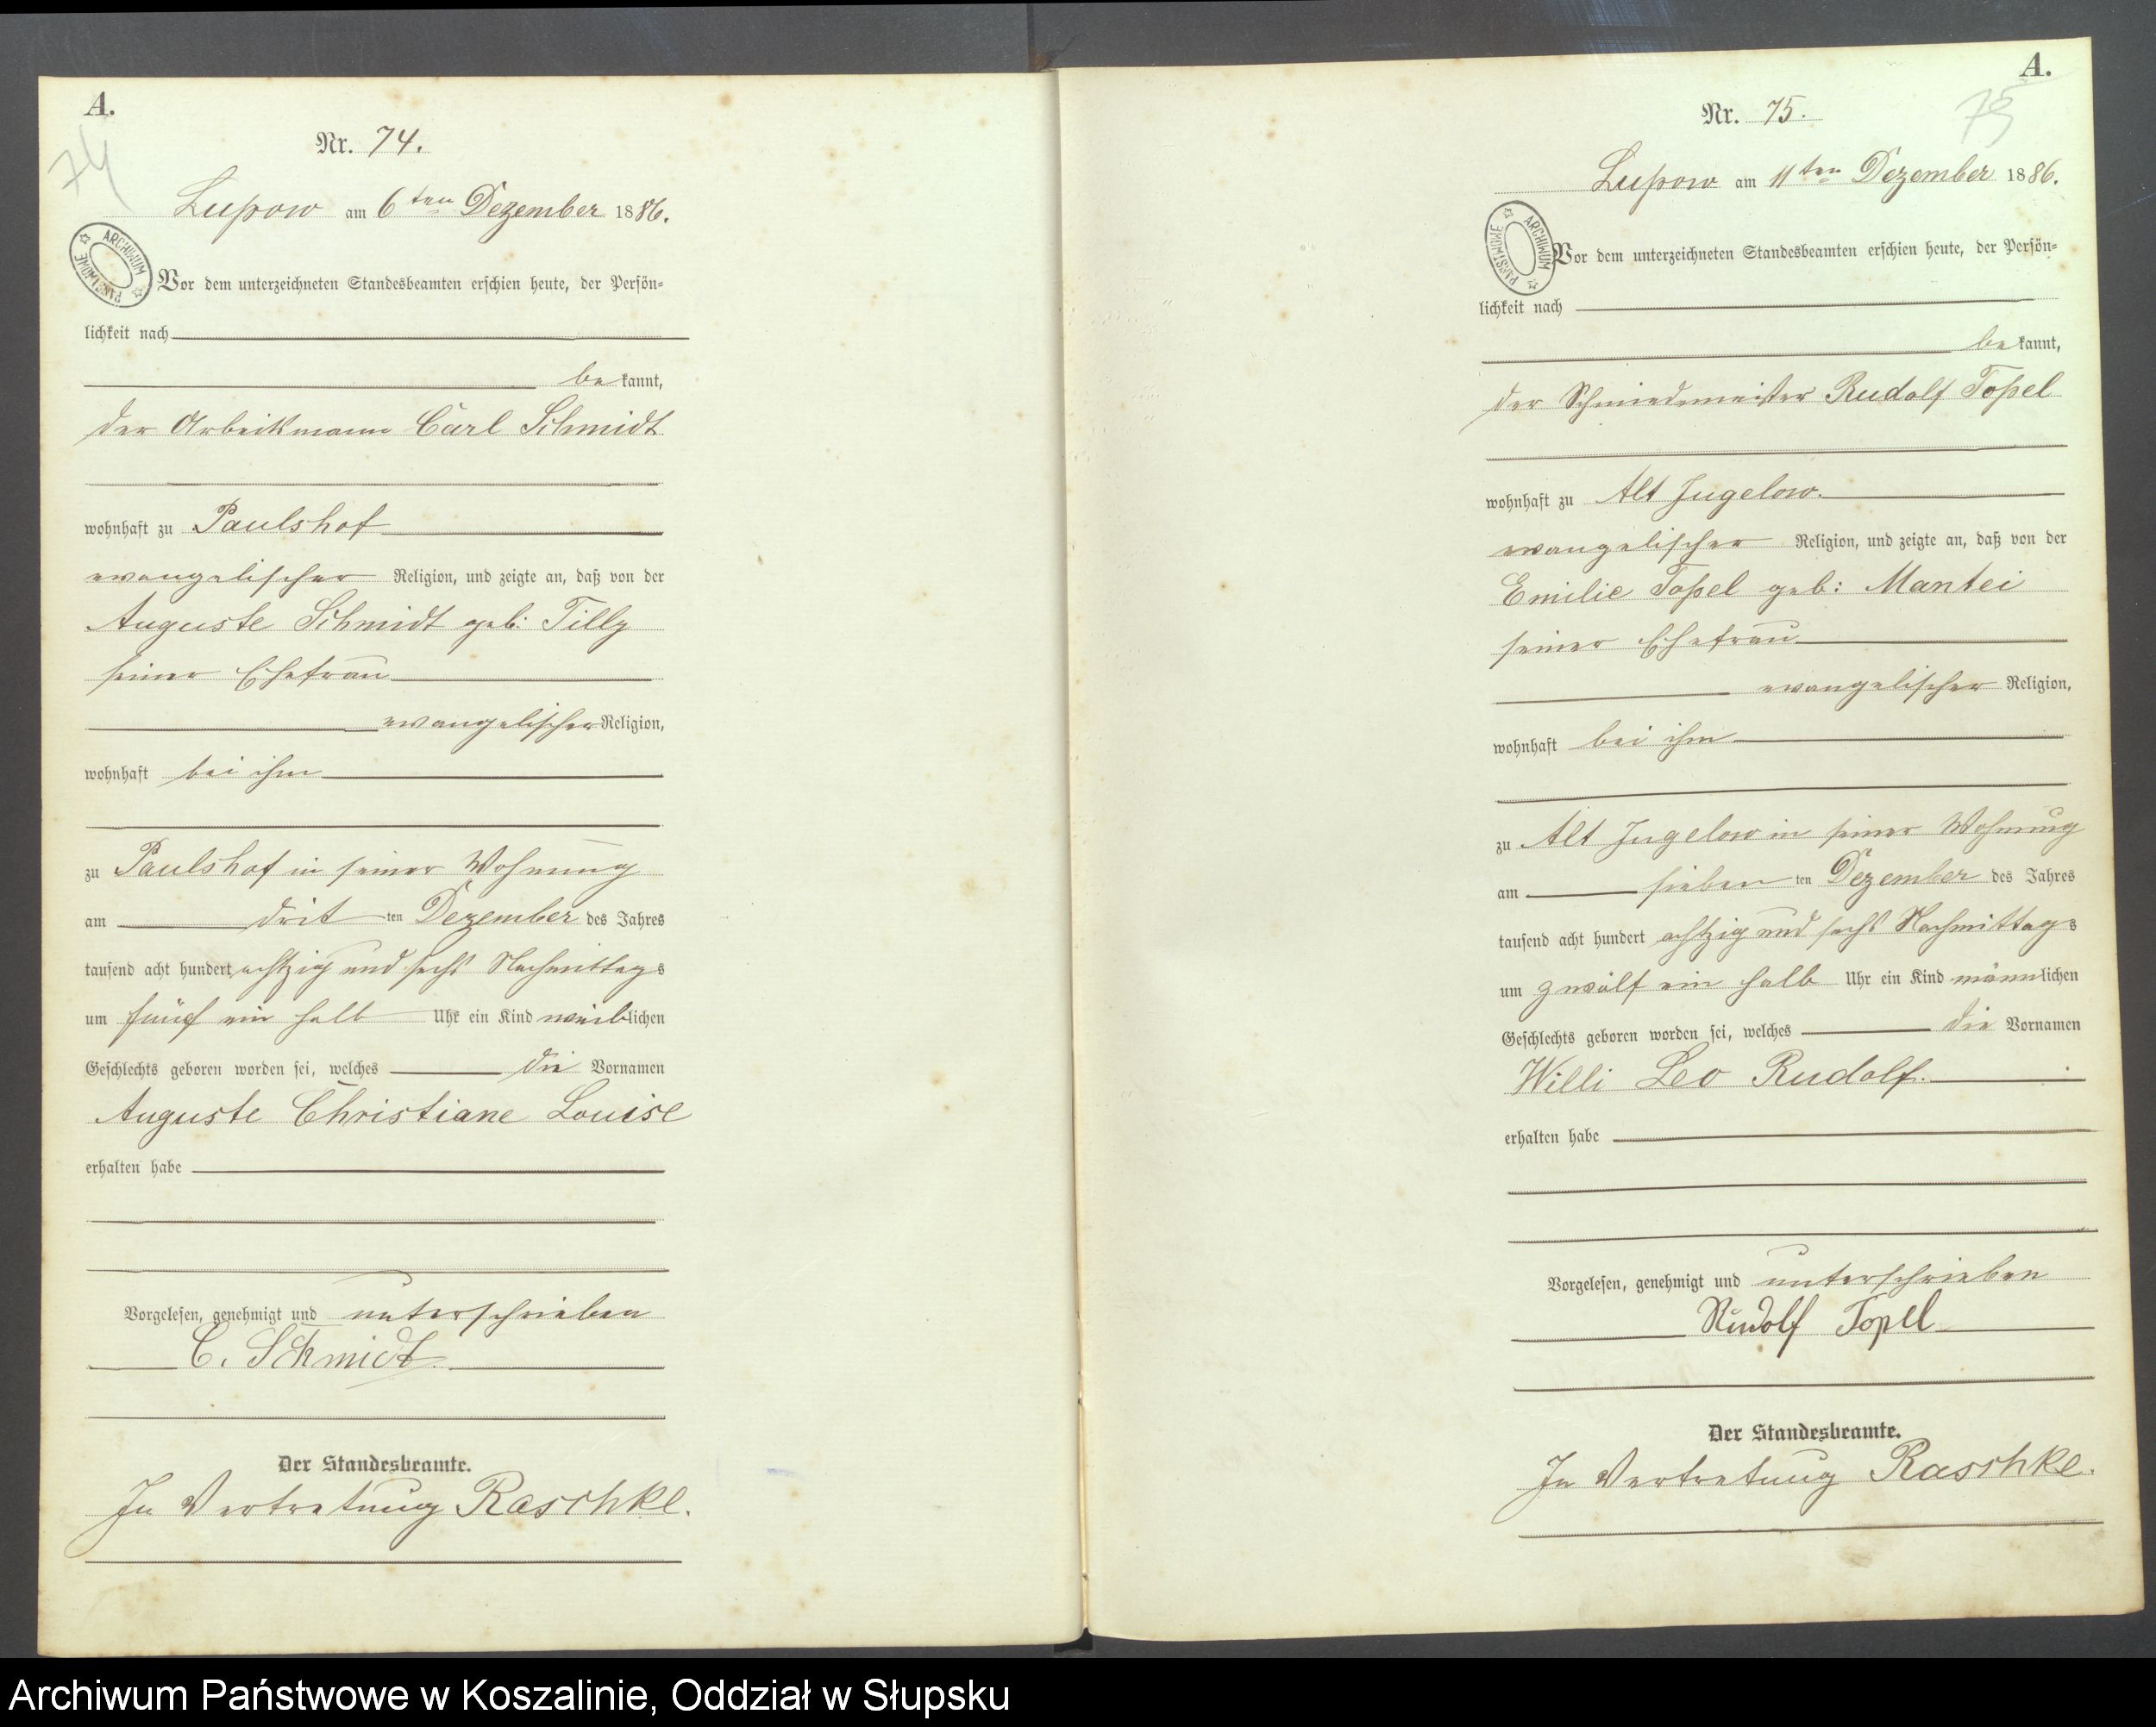 A.
74
Nr. 74.
Lupow am 6ten Dezember 1886.
ARCHIWUM PAŃSTWOWE
Vor dem unterzeichneten Standesbeamten erschien heute, der Persön-
lichkeit nach
bekannt,
der Arbeitsmann Carl Schmidt
wohnhaft zu Paulshof
evangelischer Religion, und zeigte an, daß von der
Auguste Schmidt geb: Tilly
seiner Ehefrau
evangelischer Religion,
wohnhaft bei ihm
zu Paulshof in seiner Wohnung
am dritten Dezember des Jahres
tausend acht hundert achtzig und sechs Nachmittags
um fünf ein halb Uhr ein Kind weiblichen
Geschlechts geboren worden sei, welches die Vornamen
Auguste Christiane Louise
erhalten habe
Vorgelesen, genehmigt und unterschrieben
C. Schmidt
Der Standesbeamte.
In Vertretung Raschke.
A.
75
Nr. 75.
Lupow am 11ten Dezember 1886.
ARCHIWUM PAŃSTWOWE
Vor dem unterzeichneten Standesbeamten erschien heute, der Persön-
lichkeit nach
bekannt,
der Schmiedemeister Rudolf Topel
wohnhaft zu Alt Jugelow.
evangelischer Religion, und zeigte an, daß von der
Emilie Topel geb: Mantei
seiner Ehefrau
evangelischer Religion,
wohnhaft bei ihm
zu Alt Jugelow in seiner Wohnung
am siebenten Dezember des Jahres
tausend acht hundert achtzig und sechs Nachmittags
um zwölf ein halb Uhr ein Kind männlichen
Geschlechts geboren worden sei, welches die Vornamen
Willi Leo Rudolf.
erhalten habe
Vorgelesen, genehmigt und unterschrieben
Rudolf Topel
Der Standesbeamte.
In Vertretung Raschke.
Archiwum Państwowe w Koszalinie, Oddział w Słupsku